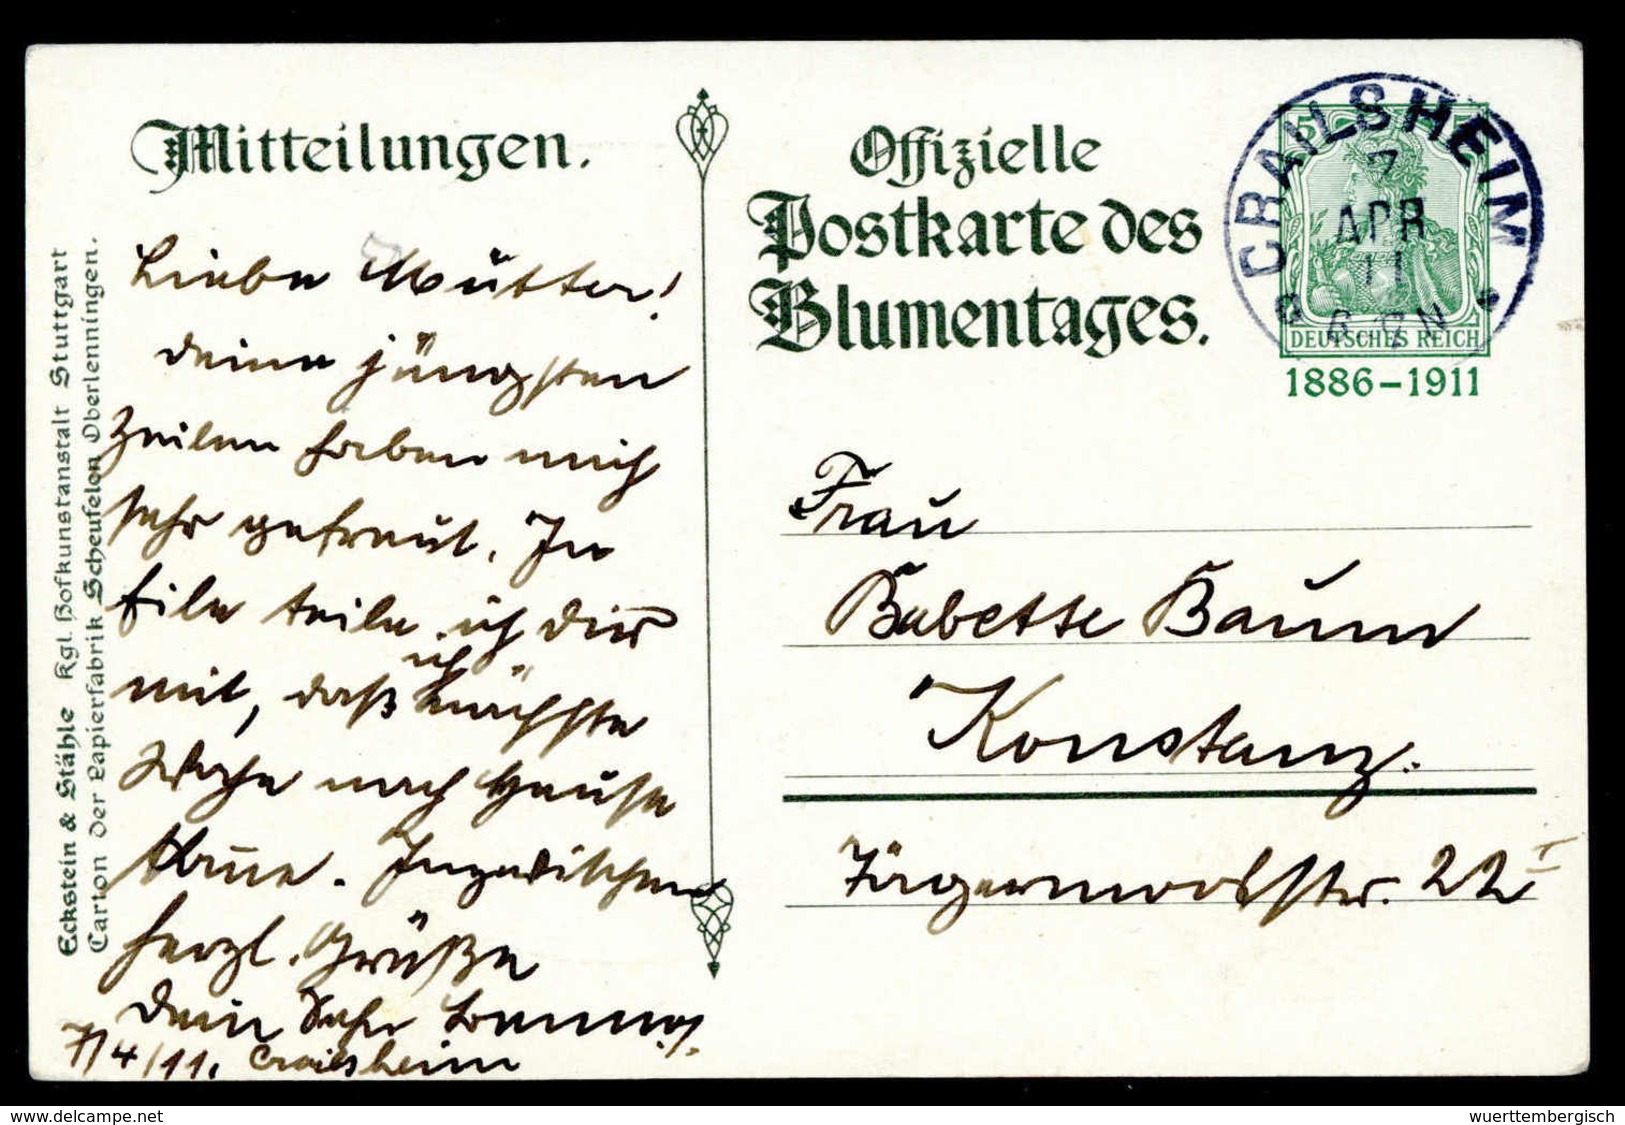 Mitteilungen.
Liebe Mutter!
Deine jüngsten
Zeilen haben mich
sehr gefreut. In
Eile teile ich Dir
mit, daß ich nächste
Woche nach Hause
komme. Inzwischen
herzl. Grüße
Dein Sohn
7/4/11. Crailsheim
Eckstein & Stähle Kgl. Hofkunstanstalt Stuttgart
Carton der Papierfabrik Scheufelen Oberlenningen.
Offizielle
Postkarte des
Blumentages.
CRAILSHEIM
7
APR
11
5 5
DEUTSCHES REICH
1886-1911
Frau
Babette Baum
Konstanz.
22 I
delcampe.net
wuerttembergisch